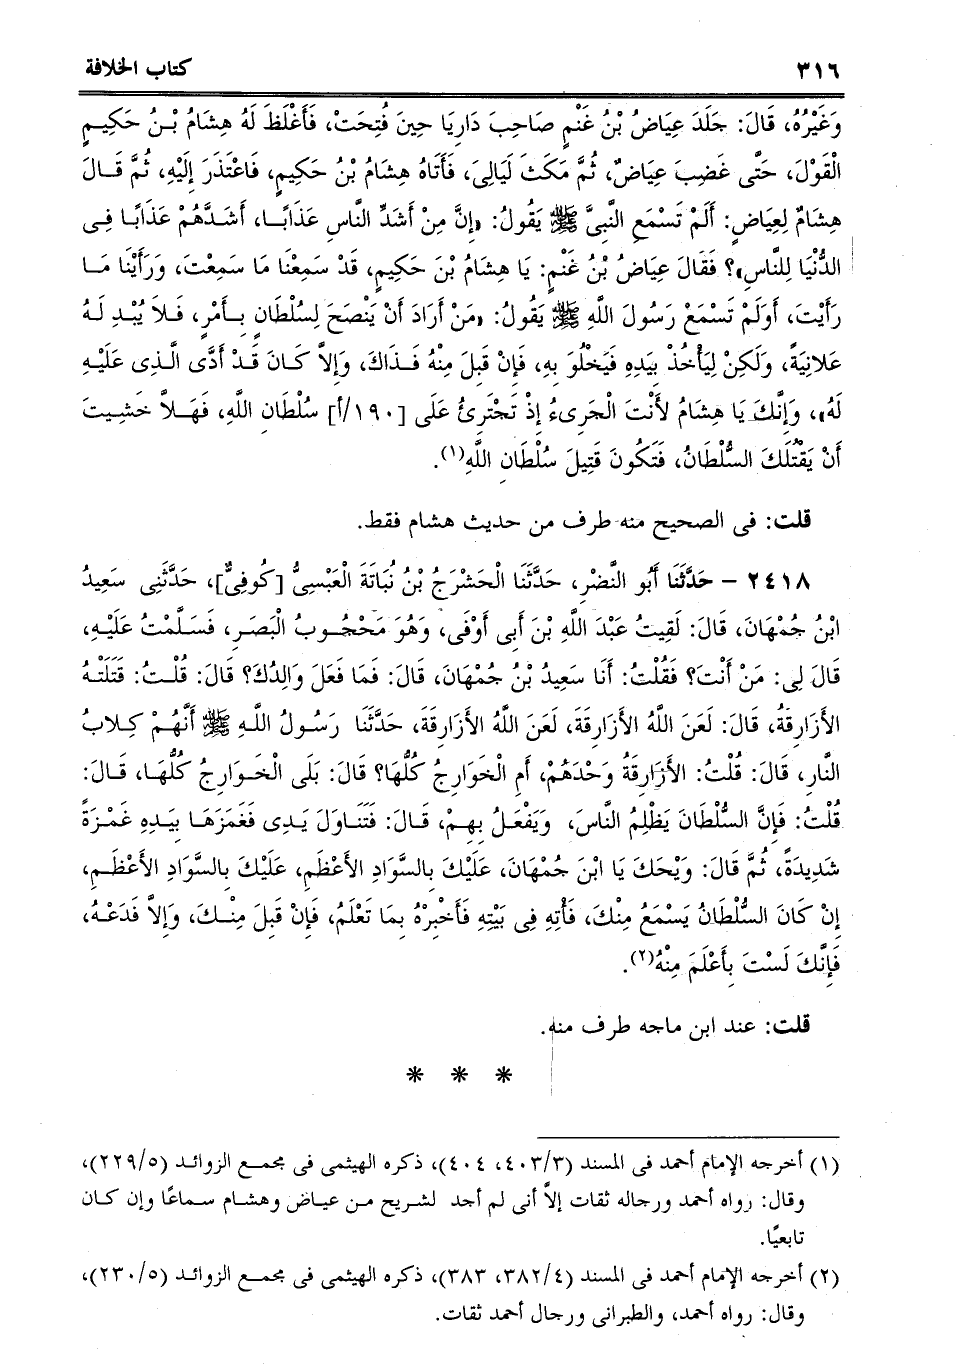 ٣١٦ كتاب الخلافة
وَغَيْرُهُ، قَالَ: جَلَدَ عِيَاضُ بْنُ غَنْمٍ صَاحِبَ دَارِيَا حِينَ فُتِحَتْ، فَأَغْلَظَ لَهُ هِشَامُ بْنُ حَكِيمٍ
الْقَوْلَ، حَتَّى غَضِبَ عِيَاضٌ، ثُمَّ مَكَثَ لَيَالِىَ، فَأَتَاهُ هِشَامُ بْنُ حَكِيمٍ، فَاعْتَذَرَ إِلَيْهِ، ثُمَّ قَالَ
هِشَامٌ لِعِيَاضٍ: أَلَمْ تَسْمَعِ النَّبِىَّ ﷺ يَقُولُ: «إِنَّ مِنْ أَشَدِّ النَّاسِ عَذَابًا، أَشَدَّهُمْ عَذَابًا فِى
الدُّنْيَا لِلنَّاسِ»؟ فَقَالَ عِيَاضُ بْنُ غَنْمٍ: يَا هِشَامُ بْنَ حَكِيمٍ، قَدْ سَمِعْنَا مَا سَمِعْتَ، وَرَأَيْنَا مَا
رَأَيْتَ، أَوَلَمْ تَسْمَعْ رَسُولَ اللَّهِ ﷺ يَقُولُ: «مَنْ أَرَادَ أَنْ يَنْصَحَ لِسُلْطَانٍ بِأَمْرٍ، فَلاَ يُبْدِ لَهُ
عَلانِيَةً، وَلَكِنْ لِيَأْخُذْ بِيَدِهِ فَيَخْلُوَ بِهِ، فَإِنْ قَبِلَ مِنْهُ فَذَاكَ، وَإِلاَّ كَانَ قَدْ أَدَّى الَّذِى عَلَيْهِ
لَهُ»، وَإِنَّكَ يَا هِشَامُ لأَنْتَ الْجَرِىءُ إِذْ تَجْتَرِئُ عَلَى [١٩٠/أ] سُلْطَانِ اللَّهِ، فَهَلاَّ خَشِيتَ
أَنْ يَقْتُلَكَ السُّلْطَانُ، فَتَكُونَ قَتِيلَ سُلْطَانِ اللَّهِ(١).
قلت: فى الصحيح منه طرف من حديث هشام فقط.
٢٤١٨ - حَدَّثَنَا أَبُو النَّضْرِ، حَدَّثَنَا الْحَشْرَجُ بْنُ نُبَاتَةَ الْعَبْسِىُّ [كُوفِىٌّ]، حَدَّثَنِى سَعِيدُ
ابْنُ جُمْهَانَ، قَالَ: لَقِيتُ عَبْدَ اللَّهِ بْنَ أَبِى أَوْفَى، وَهُوَ مَحْجُوبُ الْبَصَرِ، فَسَلَّمْتُ عَلَيْهِ،
قَالَ لِى: مَنْ أَنْتَ؟ فَقُلْتُ: أَنَا سَعِيدُ بْنُ جُمْهَانَ، قَالَ: فَمَا فَعَلَ وَالِدُكَ؟ قَالَ: قُلْتُ: قَتَلَتْهُ
الأَزَارِقَةُ، قَالَ: لَعَنَ اللَّهُ الأَزَارِقَةَ، لَعَنَ اللَّهُ الأَزَارِقَةَ، حَدَّثَنَا رَسُولُ اللَّهِ ﷺ أَنَّهُمْ كِلابُ
النَّارِ، قَالَ: قُلْتُ: الأَزَارِقَةُ وَحْدَهُمْ، أَمِ الْخَوَارِجُ كُلُّهَا؟ قَالَ: بَلَى الْخَوَارِجُ كُلُّهَا، قَالَ:
قُلْتُ: فَإِنَّ السُّلْطَانَ يَظْلِمُ النَّاسَ، وَيَفْعَلُ بِهِمْ، قَالَ: فَتَنَاوَلَ يَدِى فَغَمَزَهَا بِيَدِهِ غَمْزَةً
شَدِيدَةً، ثُمَّ قَالَ: وَيْحَكَ يَا ابْنَ جُمْهَانَ، عَلَيْكَ بِالسَّوَادِ الأَعْظَمِ، عَلَيْكَ بِالسَّوَادِ الأَعْظَمِ،
إِنْ كَانَ السُّلْطَانُ يَسْمَعُ مِنْكَ، فَأْتِهِ فِى بَيْتِهِ فَأَخْبِرْهُ بِمَا تَعْلَمُ، فَإِنْ قَبِلَ مِنْكَ، وَإِلاَّ فَدَعْهُ،
فَإِنَّكَ لَسْتَ بِأَعْلَمَ مِنْهُ(٢).
قلت: عند ابن ماجه طرف منه.
* * *
(١) أخرجه الإمام أحمد فى المسند (٤٠٣/٣، ٤٠٤)، ذكره الهيثمى فى مجمع الزوائد (٢٢٩/٥)،
وقال: رواه أحمد ورجاله ثقات إلاَّ أنى لم أجد لشريح من عياض وهشام سماعًا وإن كان
تابعيًا.
(٢) أخرجه الإمام أحمد فى المسند (٣٨٢/٤، ٣٨٣)، ذكره الهيثمى فى مجمع الزوائد (٢٣٠/٥)،
وقال: رواه أحمد، والطبرانى ورجال أحمد ثقات.